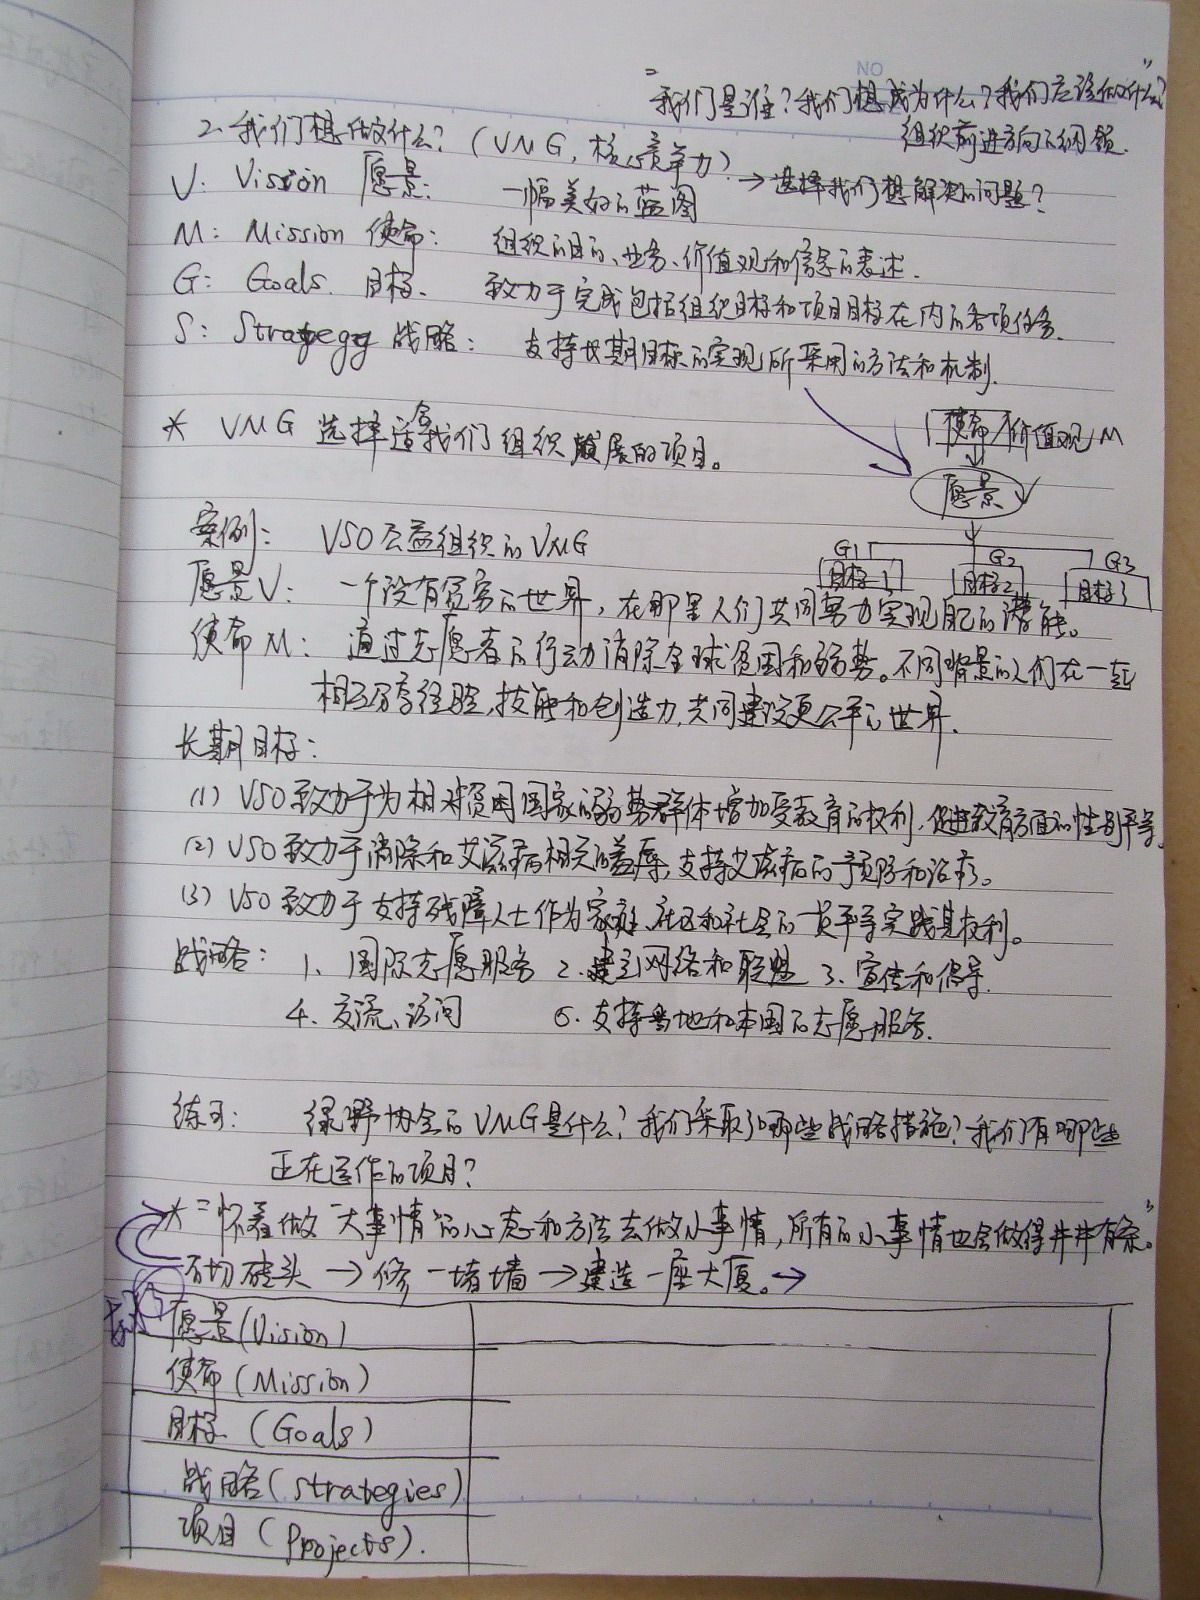 NO
"我们是谁?我们想成为什么?我们应该做什么?"
组织前进方向的纲领.
2. 我们想做什么?(VMG,核心竞争力) → 选择我们想解决的问题?
V: Vision 愿景: 一幅美好的蓝图
M: Mission 使命: 组织的目的、业务、价值观和信念的表述.
G: Goals. 目标. 致力于完成包括组织目标和项目目标在内的各项任务.
S: Strategy 战略: 支持长期目标的实现所采用的方法和机制.
* VMG 选择适合我们组织发展的项目。
使命/价值观 M
愿景 V
G1 G2 G3
目标1 目标2 目标3
案例: VSO公益组织的VMG
愿景V: 一个没有贫穷的世界,在那里人们共同努力实现自己的潜能。
使命M: 通过志愿者的行动消除全球贫困和弱势。不同背景的人们在一起
相互分享经验,技能和创造力,共同建设更公平的世界.
长期目标:
(1) VSO致力于为相对贫困国家的弱势群体增加受教育的权利,促进教育方面的性别平等
(2) VSO致力于消除和艾滋病相关的羞辱,支持艾滋病的预防和治疗。
(3) VSO致力于支持残障人士作为家庭、社区和社会的一员平等实践其权利。
战略: 1、国际志愿服务 2、建立网络和联盟 3、宣传和倡导.
4、交流、访问 5、支持当地和本国的志愿服务.
练习: 绿野协会的VMG是什么?我们采取了哪些战略措施?我们有哪些
正在运作的项目?
* "怀着做"大事情"的心态和方法去做小事情,所有的小事情也会做得井井有条。"
切砖头 → 修一堵墙 → 建造一座大厦。→
愿景(Vision)
使命(Mission)
目标(Goals)
战略(strategies)
项目(projects).